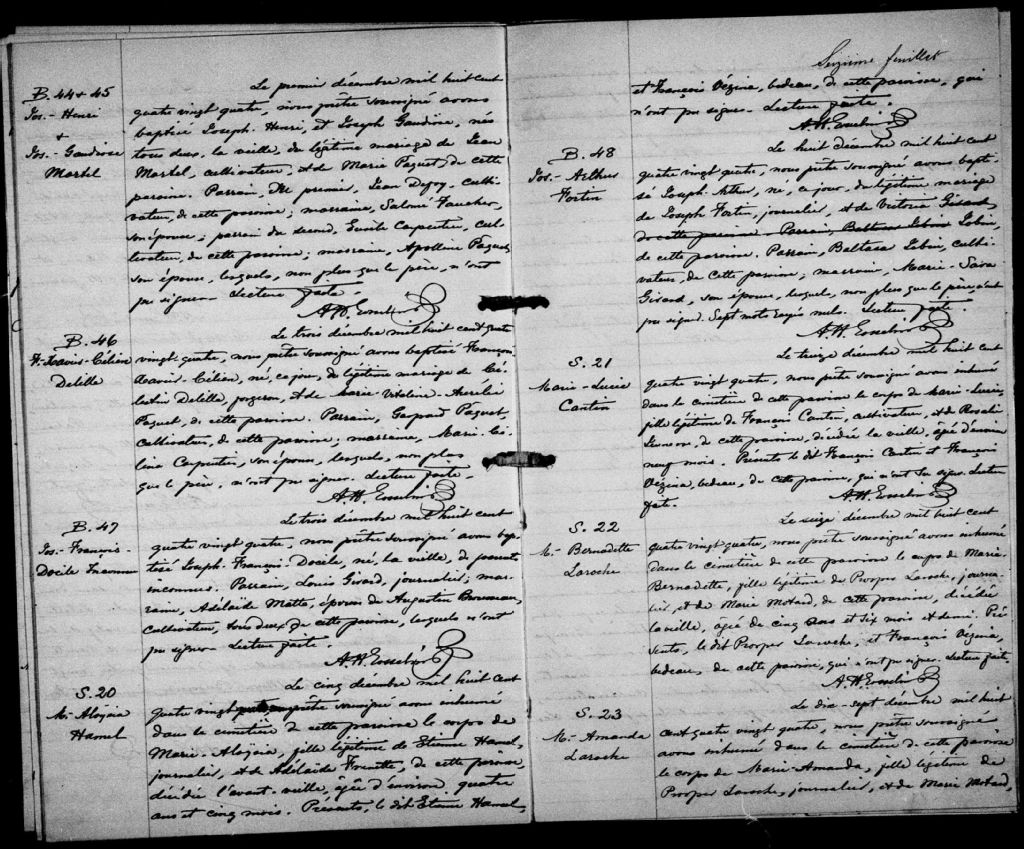 B. 44 + 45
Jos.- Henri
+
Jos.- Gaudiose
Martel
Le premier décembre mil huit cent
quatre vingt quatre, nous prêtre soussigné avons
baptisé Joseph-Henri, et Joseph Gaudiose, nés
tous deux, la veille, du légitime mariage de Jean
Martel, cultivateur, et de Marie Paquet, de cette
paroisse. Parrain, du premier, Jean Defoy, culti-
vateur, de cette paroisse; marraine, Salomé Faucher,
son épouse; parrain du second, Carpentier, cul-
tivateur, de cette paroisse; marraine, Apolline Paquet,
son épouse, lesquels, non plus que le père, n'ont
pu signer. Lecture faite.
A.H.
B. 46
F. Xavier-Célien
Delille
Le trois décembre mil huit cent quatre
vingt quatre, nous prêtre soussigné avons baptisé François
Xavier-Célien, né, ce jour, du légitime mariage de Cé-
lestin Delille, forgeron, et de Marie-Vitaline-Aurélie
Paquet, de cette paroisse. Parrain, Gaspard Paquet,
cultivateur, de cette paroisse; marraine, Marie-Cé-
lina Carpentier, son épouse, lesquels, non plus
que le père, n'ont pu signer. Lecture faite.
A.H.
B. 47
Jos.- François-
Docile Inconnu
Le trois décembre mil huit cent
quatre vingt quatre, nous prêtre soussigné avons bap-
tisé Joseph-François-Docile, né, la veille, de parents
inconnus. Parrain, Louis Girard, journalier; mar-
raine, Adélaïde Matte, épouse de Augustin
cultivateur, tous deux de cette paroisse, lesquels n'ont
pu signer. Lecture faite.
A.H.
S. 20
M.- Aloïsia
Hamel
Le cinq décembre mil huit cent
quatre vingt prêtre soussigné avons inhumé
dans le cimetière de cette paroisse le corps de
Marie-Aloïsia, fille légitime de Etienne Hamel,
journalier, et de Adélaïde Frenette, de cette paroisse,
décédée l'avant-veille, âgée d'environ quatre
ans et cinq mois. Présents, le dit Etienne Hamel,
Seizième feuillet
et François Vézina, bedeau, de cette paroisse, qui
n'ont pu signer. Lecture faite.
A.H.
B. 48
Jos.- Arthur
Fortin
Le huit décembre mil huit cent
quatre vingt quatre, nous prêtre soussigné avons bapti-
sé Joseph-Arthur, né, ce jour, du légitime mariage
de Joseph Fortin, journalier, et de Victoria Girard,
de cette paroisse. Parrain,
de cette paroisse. Parrain, Baltasa Lobin, culti-
vateur, de cette paroisse; marraine, Marie-Sara
Girard, son épouse, lesquels, non plus que le père, n'ont
pu signer. Sept mots rayés nuls. Lecture faite.
A.H.
S. 21
Marie-Lucie
Cantin
Le treize décembre mil huit cent
quatre vingt quatre, nous prêtre soussigné avons inhumé
dans le cimetière de cette paroisse le corps de Marie-Lucie,
fille légitime de François Cantin, cultivateur, et de Rosalie
de cette paroisse, décédée la veille, âgée d'environ
neuf mois. Présents le dit François Cantin et François
Vézina, bedeau, de cette paroisse, qui n'ont su signer. Lecture
faite.
A.H.
S. 22
M.- Bernadette
Laroche
Le seize décembre mil huit cent
quatre vingt quatre, nous prêtre soussigné avons inhumé
dans le cimetière de cette paroisse le corps de Marie-
Bernadette, fille légitime de Prosper Laroche, journa-
lier, et de Marie Motard, de cette paroisse, décédée
la veille, âgée de cinq ans et six mois et demi. Pré-
sents, le dit Prosper Laroche, et François Vézina,
bedeau, de cette paroisse, qui n'ont pu signer. Lecture faite.
A.H.
S. 23
M.- Amanda
Laroche
Le dix-sept décembre mil huit
cent quatre vingt quatre, nous prêtre soussigné
avons inhumé dans le cimetière de cette paroisse
le corps de Marie-Amanda, fille légitime de
Prosper Laroche, journalier, et de Marie Motard,